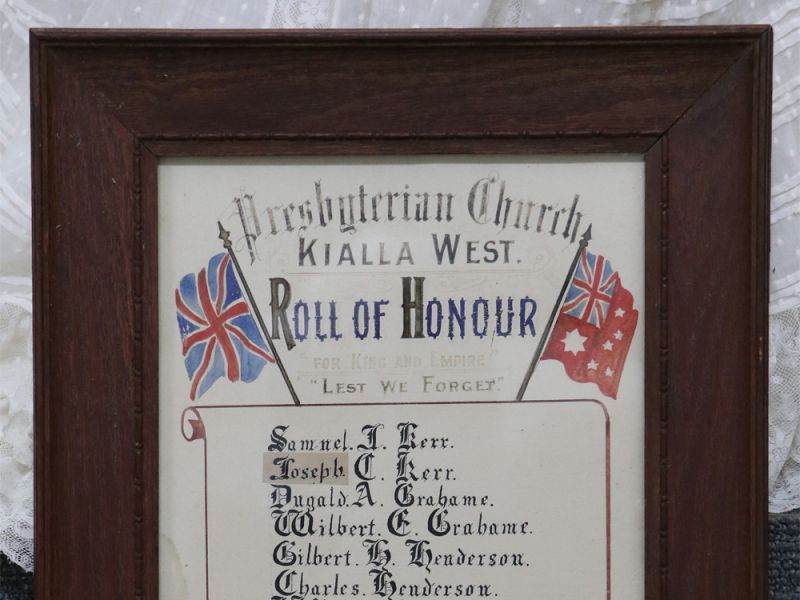 Presbyterian Church
KIALLA WEST.
ROLL OF HONOUR
"FOR KING AND EMPIRE"
"LEST WE FORGET."
Samuel. I. Kerr.
Joseph. C. Kerr.
Dugald. A. Grahame.
Wilbert. E. Grahame.
Gilbert. H. Henderson.
Charles. Henderson.